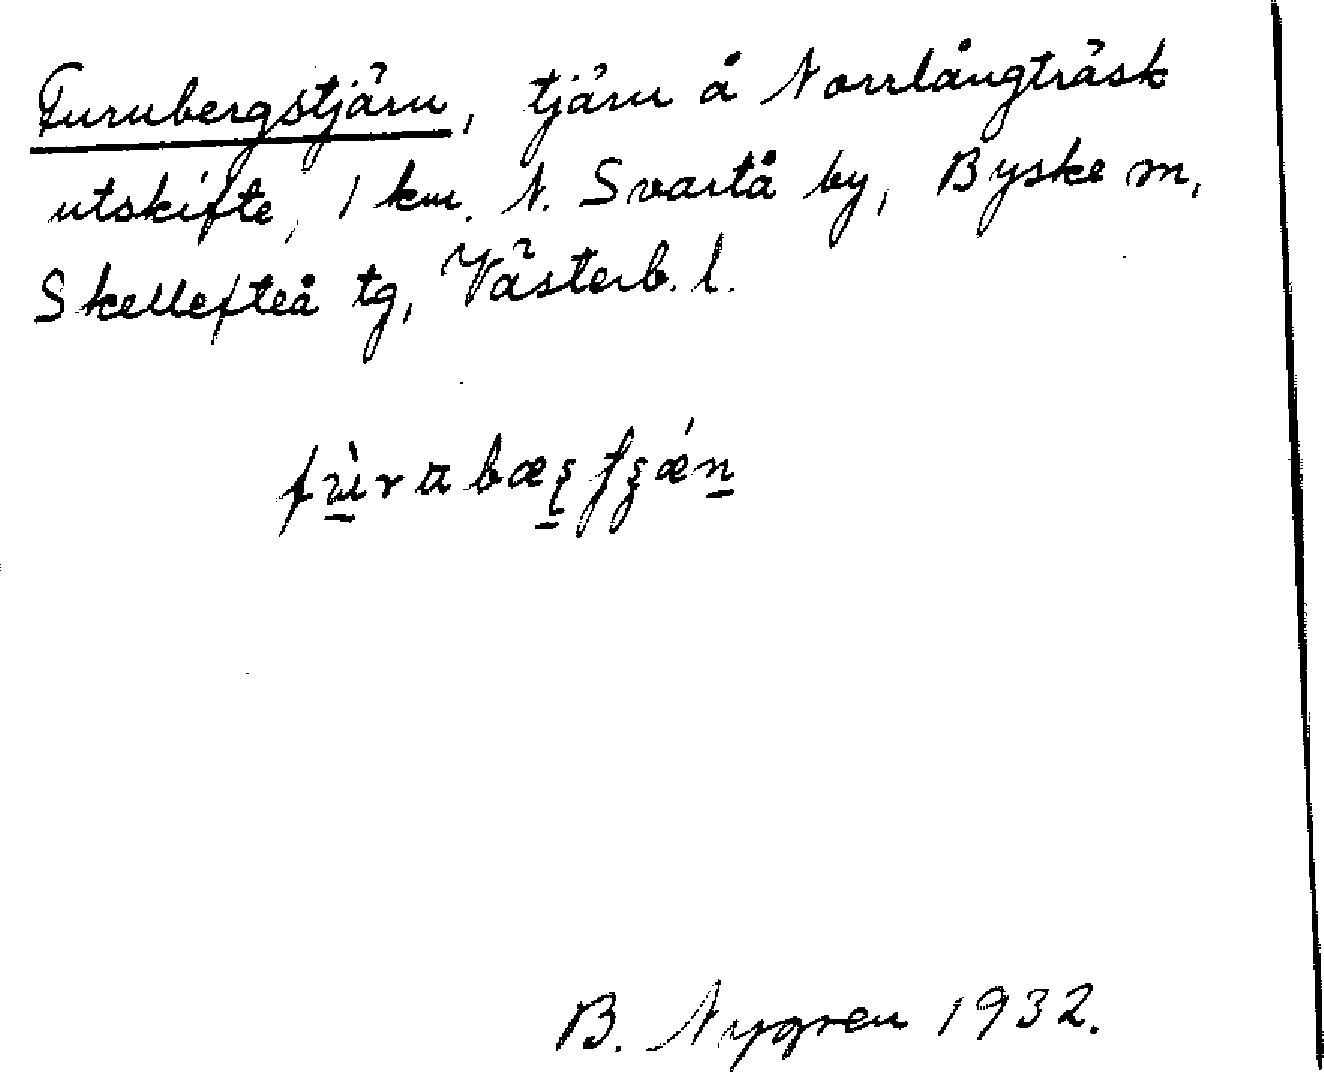 Furubergstjärn, tjärn å Norrlångträsk
utskifte, 1 km. N. Svartå by, Byske m,
Skellefteå tg, Västerb. l.
B. Nygren 1932.